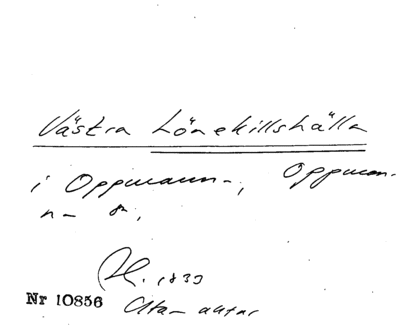 Västra Lönekillshälla
i Oppmann-, Oppman-
n- s,
1833
Nr 10856 Utan antar